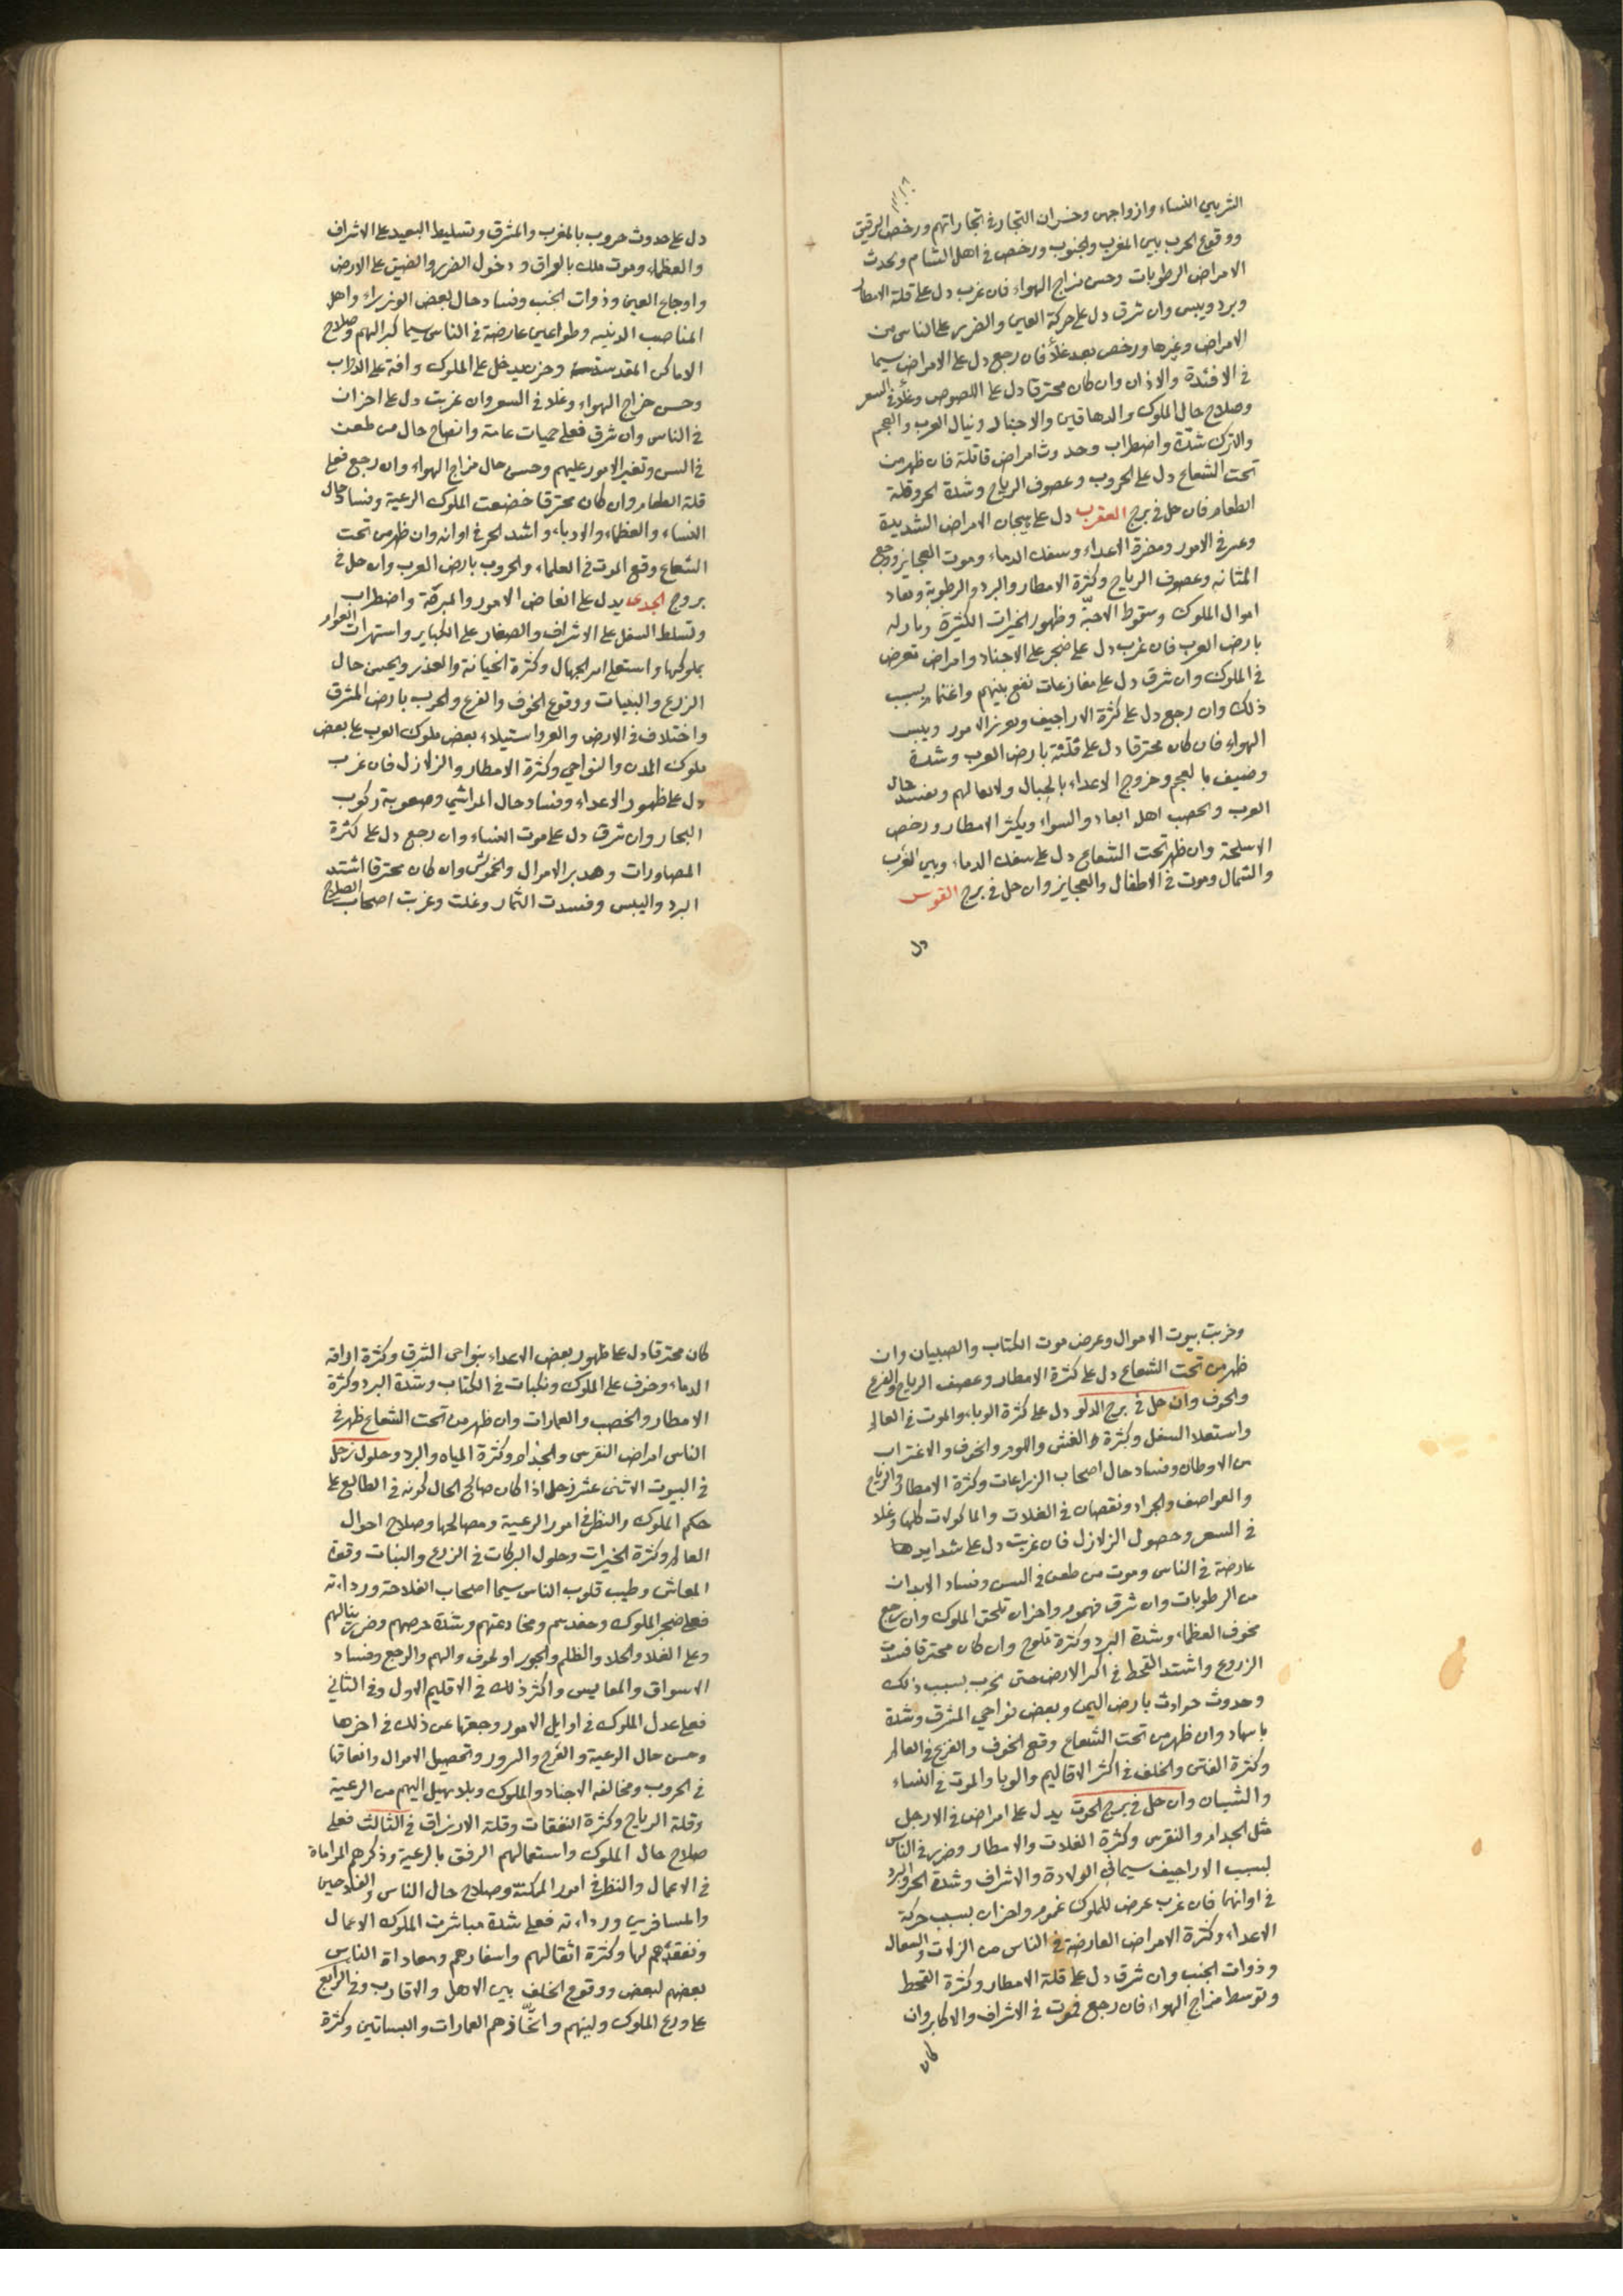 الشربين النساء وازواجهن وخسران التجار في تجاراتهم ورخص الرقيق
ووقوع الحرب بين المغرب والجنوب ورخص في اهل الشام وتحدث
الامراض الرطوبات وحسن مزاج الهواء فان غرب دل على قلة الامطار
وبرد ويبس وان شرق دل على حركة العين والضرر على الناس من
الامراض وغيرها ورخص بعد غلاء فان رجع دل على الامراض سيما
في الافئدة والاذان وان كان محترقا دل على اللصوص وغلاء في السعر
وصلاح حال الملوك والدهاقين والاجناد ونيال العرب والعجم
والترك شدة واضطراب وحدوث امراض قاتلة فان ظهر من
تحت الشعاع دل على الحروب وعصوف الرياح وشدة الحر وقلة
الطعام فان حل في برج العقرب دل على هيجان الامراض الشديدة
وعسر في الامور ومضرة الاعداء وسفك الدماء وموت العجايز ووجع
المثانه وعصوف الرياح وكثرة الامطار والبرد والرطوبة ونفاد
اموال الملوك وسقوط الاجنّة وظهور الخيرات الكثيرة
بارض العرب فان غرب دل على ضجر على الاجناد وامراض تعرض
في الملوك وان شرق دل على مفازعات تقع بينهم واغتمام بسبب
ذلك وان رجع دل على كثرة الاراجيف وتعزز الامور ويبس
الهواء فان كان محترقا دل على فتنة بارض العرب وشدة
وضيف بالعجم وخروج الاعداء بالجبال ولا تعالهم وتفسد حال
العرب والخصب اهل ابعاد والسواد ويكثر الامطار ورخص
الاسلحة وان ظهر تحت الشعاع دل على سفك الدماء وبين الغرب
والشمال وموت في الاطفال والعجايز وان حل في برج القوس
دل
دل على حدوث حروب بالمغرب والمشرق وتسليط العبيد على الاشراف
والعظماء وموت ملك بالعراق ودخول الضرر والضيق على الارض
واوجاع العين وذوات الجنب وفساد حال بعض الوزراء واهل
المناصب الدنيه وطواعين عارضة في الناس سيما كبرائهم وصلاح
الاماكن المقدسة وحزن يدخل على الملوك وافة على الدواب
وحسن مزاج الهواء وغلا في السعر وان غربت دل على احزان
في الناس وان شرق فعلى حميات عامة وانصلاح حال من طعن
في السن وتغير الامور عليهم وحسن حال مزاج الهواء وان رجع فعلى
قلة الطعام وان كان محترقا خضعت الملوك الرعية وفساد حال
النساء والعظماء والادباء واشتد الحر في اوانه وان ظهر من تحت
الشعاع وقع الموت في العلماء والحروب بارض العرب وان حل في
بروج الجدى يدل على انغاض الامور والمبرقة واضطراب
وتسلط السفل على الاشراف والصغار على الكباير واستهرات العوار
بملوكها واستعلى امر الجهال وكثرة الخيانة والعذر ويحسن حال
الزرع والنبات ووقوع الخوف والفزع والحرب بارض المشرق
واختلاف في الارض والعر واستيلاء بعض ملوك العرب على بعض
ملوك المدن والنواحي وكثرة الامطار والزلازل فان غرب
دل على ظهور الاعداء وفساد حال المراشي وصعوبة ركوب
البحار وان شرق دل على موت النساء وان رجع دل على كثرة
المصاورات وهدبر الاموال والخموش وان كان محترقا اشتد
البرد واليبس وفسدت الثمار وغلت وغربت اصحاب الصلاح
وخربت بيوت الاموال وعرض موت الكتاب والصبيان وان
ظهر من تحت الشعاع دل على كثرة الامطار وعصف الرياح والفزع
والخوف وان حل في برج الدلو دل على كثرة الوباء والموت في العالم
واستعلا السفل وكثرة الغش واللوم والخوف والاغتراب
من الاوطان وفساد حال اصحاب الزراعات وكثرة الامطار والرياح
والعواصف والجراد ونقصان في الغلات والماكولات كلها وغلا
في السعر وحصول الزلازل فان غربت دل على شدايدها
عارضة في الناس وموت من طعن في السن وفساد الابدان
من الرطوبات وان شرق فهموم واحزان تلحق الملوك وان رجع
نخوف العظماء وشدة البرد وكثرة ثلوج وان كان محترقا فسدت
الزروع واشتد القحط في اكثر الارض حتى تخرب بسبب ذلك
وحدوث حوادث بارض اليمن وبعض نواحي المشرق وشدة
باسهاد وان ظهر من تحت الشعاع وقع الخوف والفزع في العالم
وكثرة الفتن والخلف في اكثر الاقاليم والوبا والموت في النساء
والشبان وان حل في برج الحوت يدل على امراض في الارجل
مثل الجدام والنقرس وكثرة الغلات والامطار وضرر في الناس
لسبب الاراجيف سيما في الولادة والاشراف وشدة الحر والبرد
في اوانهما فان غرب عرض للملوك غموم واحزان بسبب حركة
الاعداء وكثرة الامراض العارضة في الناس من الزلات والسعال
وذوات الجنب وان شرق دل على قلة الامطار وكثرة القحط
وتوسط مزاج الهواء فان رجع فموت في الاشراف والاكابر وان
كان
كان محترقا دل على ظهور بعض الاعداء بنواحى الشرق وكثرة اراقة
الدماء وخوف على الملوك ونكبات في الكتاب وشدة البرد وكثرة
الامطار والخصب والعمارات وان ظهر من تحت الشعاع ظهر في
الناس امراض النقرس والجذام وكثرة المياه والبرد وحلول زحل
في البيوت الاثنى عشر زحل اذا كان صالح الحال كونه في الطالع على
حكم الملوك والنظر في امور الرعية ومصالحها وصلاح احوال
العالم وكثرة الخيرات وحلول البركات في الزرع والنبات وقوة
المعاش وطيب قلوب الناس سيما اصحاب الفلاحة ورداءته
فعلى ضجر الملوك وحقدهم ومخادعتهم وشدة حرصهم وضرر ينالهم
وعلى الغلا والجلا والظلم والجور او لخوف والهم والرجع وفساد
الاسواق والمعايس واكثر ذلك في الاقليم الاول وفي الثاني
فعلى عدل الملوك في اوايل الامور ورجعتها عن ذلك في اخرها
وحسن حال الرعية والفرح والسرور وتحصيل الاموال وانفاقها
في الحروب ومخالفه الاجناد والملوك وبلا يهيل اليهم من الرعية
وقلة الرياح وكثرة النفقات وقلة الارزاق في الثالث فعلى
صلاح حال الملوك واستعمالهم الرفق بالرعية وذكرهم المراماة
في الاعمال والنظر في امور المكنة وصلاح حال الناس والفلاحين
والمسافرين ورداءته فعلى شدة مباشرت الملوك الاعمال
وتفقدهم لها وكثرة اثقالهم واسفارهم ومعاداة الناس
بعضهم لبعض ووقوع الخلف بين الاهل والاقارب وفي الرابع
على ورع الملوك ولينهم واتخاذهم العمارات والبساتين وكثرة